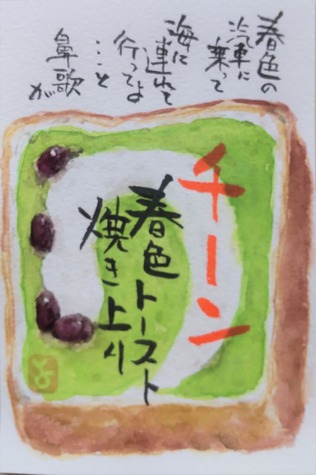 春色の
汽車に
乗って
海に
連れて
行ってよ
…と
鼻歌が
チーン
春色トースト
焼き上り